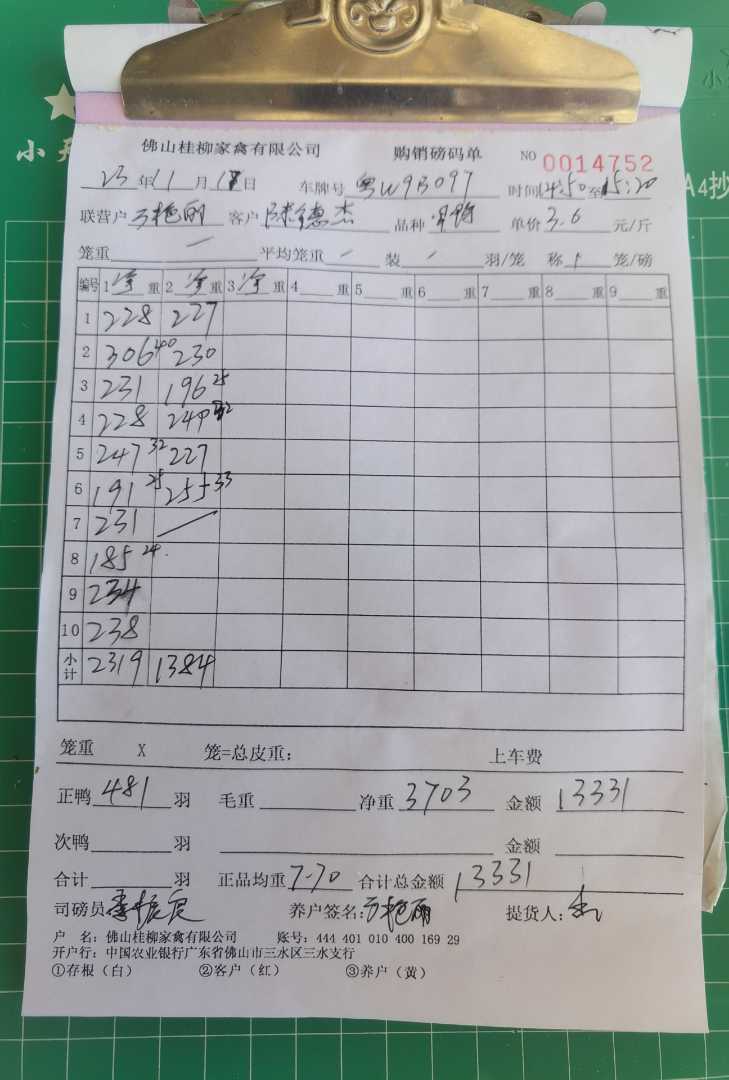 小
佛山桂柳家禽有限公司 购销磅码单 NO 0014752
23 年 11 月 18 日 车牌号 粤W9B097 时间 14:50 至 15:20 A4抄
联营户 艳丽 客户 陈德杰 品种 单价 3.6 元/斤
笼重 — 平均笼重 — 装 / 羽/笼 称 1 笼/磅
编号 1 净 重 2 净 重 3 净 重 4 重 5 重 6 重 7 重 8 重 9 重
1 228 227
2 306 40 230
3 231 196 25
4 228 249 32
5 247 32 227
6 191 25 255 33
7 231
8 185 24
9 234
10 238
小计 2319 1384
笼重 X 笼=总皮重: 上车费
正鸭 481 羽 毛重 净重 3703 金额 13331
次鸭 羽 金额
合计 羽 正品均重 7.70 合计总金额 13331
司磅员 李振 养户签名: 艳丽 提货人:
户 名: 佛山桂柳家禽有限公司 账号: 444 401 010 400 169 29
开户行: 中国农业银行广东省佛山市三水区三水支行
①存根(白) ②客户(红) ③养户(黄)